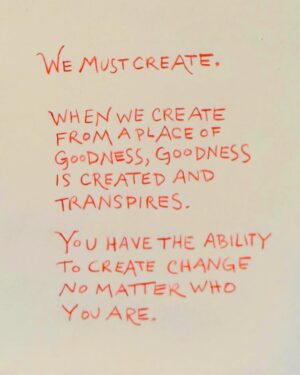 WE MUST CREATE.
WHEN WE CREATE
FROM A PLACE OF
GOODNESS, GOODNESS
IS CREATED AND
TRANSPIRES.
YOU HAVE THE ABILITY
TO CREATE CHANGE
NO MATTER WHO
YOU ARE.